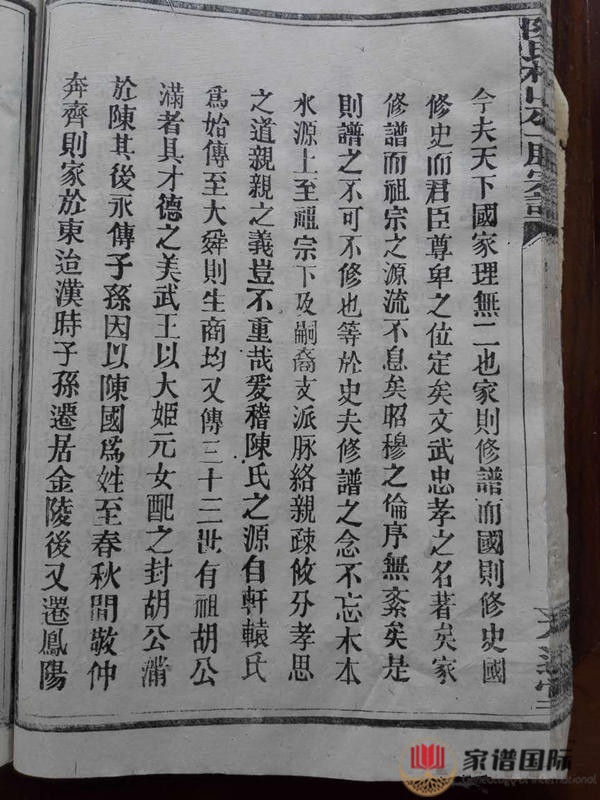 今夫天下國家理無二也家則修譜而國則修史國
修史而君臣尊卑之位定矣文武忠孝之名著矣家
修譜而祖宗之源流不息矣昭穆之倫序無紊矣是
則譜之不可不修也等於史夫修譜之念不忘木本
水源上至祖宗下及嗣裔支派脉絡親疎攸分孝思
之道親親之義豈不重哉爰稽陳氏之源自軒轅氏
爲始傳至大舜則生商均又傳三十三世有祖胡公
滿者具才德之美武王以大姬元女配之封胡公滿
於陳其後永傳子孫因以陳國爲姓至春秋間敬仲
奔齊則家於東迨漢時子孫遷居金陵後又遷鳳陽
家谱国际